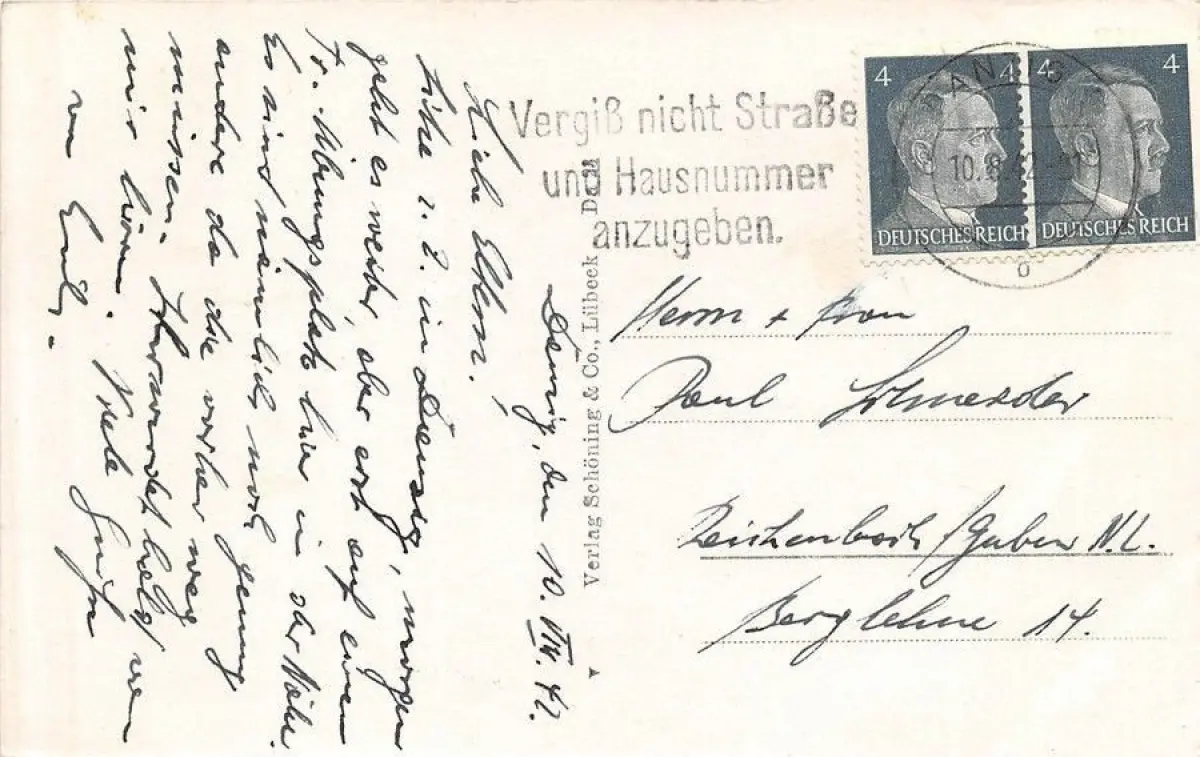 Danzig, den 10. VIII. 42.
Liebe Eltern!
Sitze z. Z. in Danzig, morgen
geht es weiter, aber erst auf einen
Tr. Übungsplatz hier in der Nähe.
Es sind nämlich noch genug
andere da die vorher weg
müssen. Ihr werdet bald von
mir hören. Viele Grüße
von Emil.
Verlag Schöning & Co., Lübeck
Vergiß nicht Straße
und Hausnummer
anzugeben.
DANZIG
10.8.42
4
4
DEUTSCHES REICH
DEUTSCHES REICH
Herrn + Frau
Paul Schneider
Reichenbach / Guben N.L.
Berglehne 14.